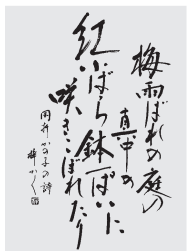 梅雨ばれの庭の
真中の
紅いばら鉢一ぱいに
咲きこぼれたり
岡井かの子の詩